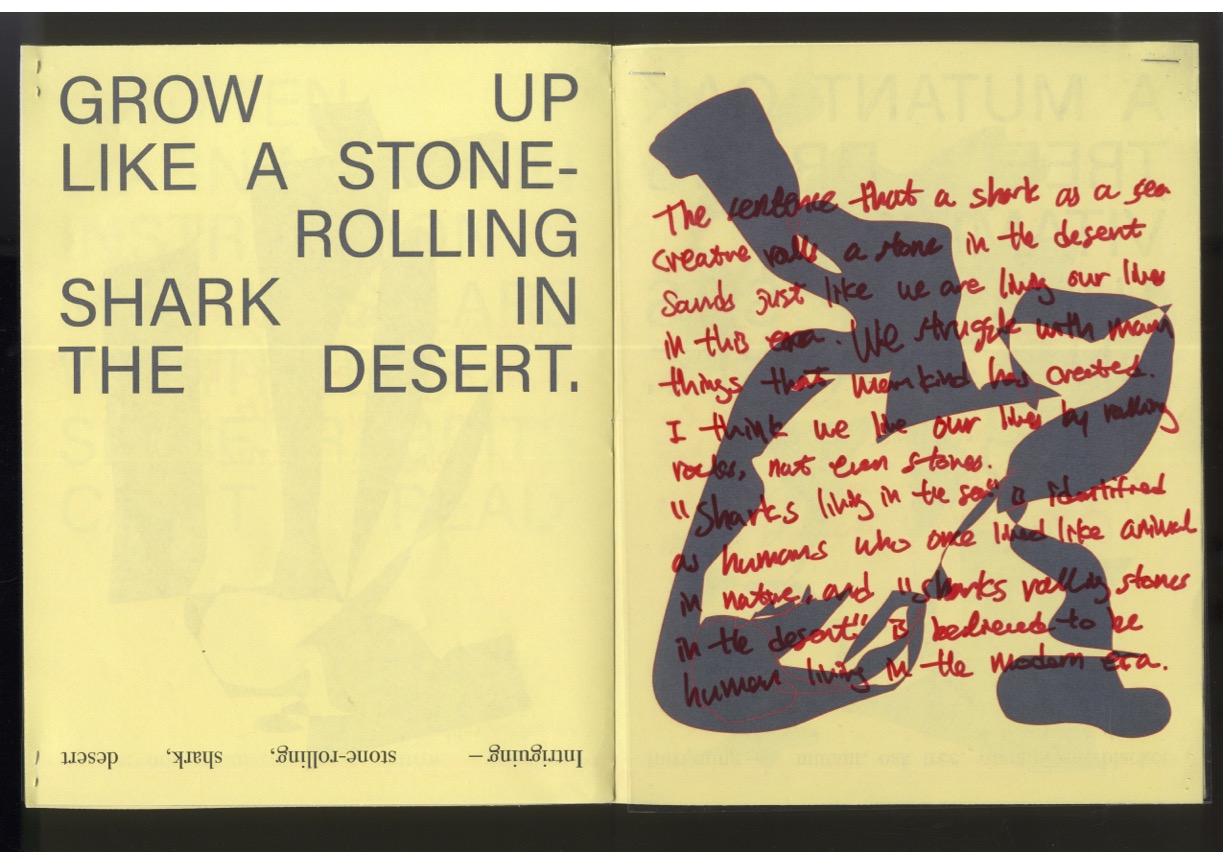 GROW UP
LIKE A STONE-
ROLLING
SHARK IN
THE DESERT.
Intriguing — stone-rolling, shark, desert
The sentence that a shark as a sea
creature rolls a stone in the desert
sounds just like we are living our lives
in this era. We struggle with many
things that mankind has created.
I think we live our lives by rolling
rocks, not even stones.
"Sharks living in the sea" is identified
as humans who once lived like animal
in nature, and "sharks rolling stones
in the desert" is believed to be
human living in the modern era.
A MUTANT OAK
TREE